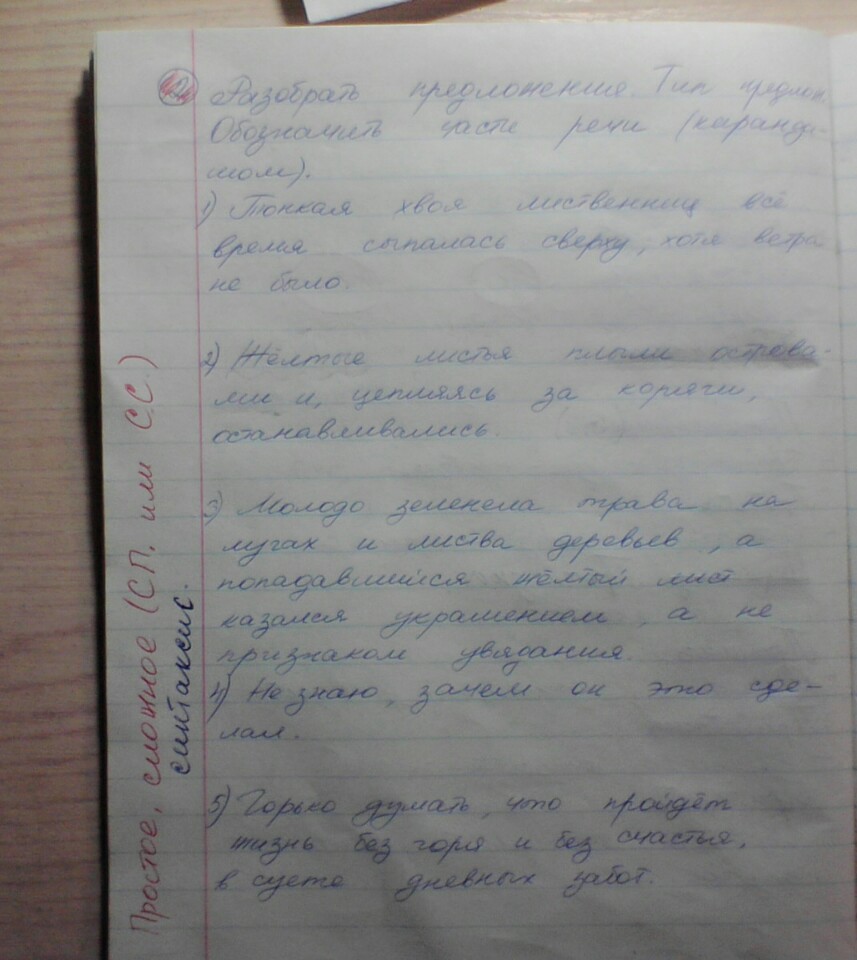 2) Разобрать предложение. Тип предлож.
Обозначить части речи (каранда-
шом).
1) Тонкая хвоя лиственниц всё
время сыпалась сверху, хотя ветра
не было.
2) Жёлтые листья плыли острова-
ми и, цепляясь за коряги,
останавливались.
3) Молодо зеленела трава на
лугах и листва деревьев, а
попадавшийся жёлтый лист
казался украшением, а не
признаком увядания.
4) Не знаю, зачем он это сде-
лал.
5) Горько думать, что пройдёт
жизнь без горя и без счастья,
в суете дневных забот.
Простое, сложное (СП. или СС.)
синтаксис.